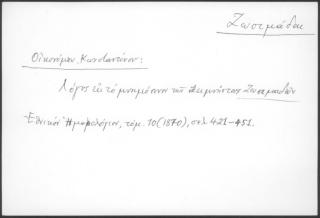 Ζωσιμάδαι
Οἰκονόμου, Κωνσταντίνου:
Λόγος εἰς τὸ μνημόσυνον τῶν ἀειμνήστων Ζωσιμαδῶν
Ἐθνικὸν Ἡμερολόγιον, τόμ. 10 (1870), σελ. 421-451.